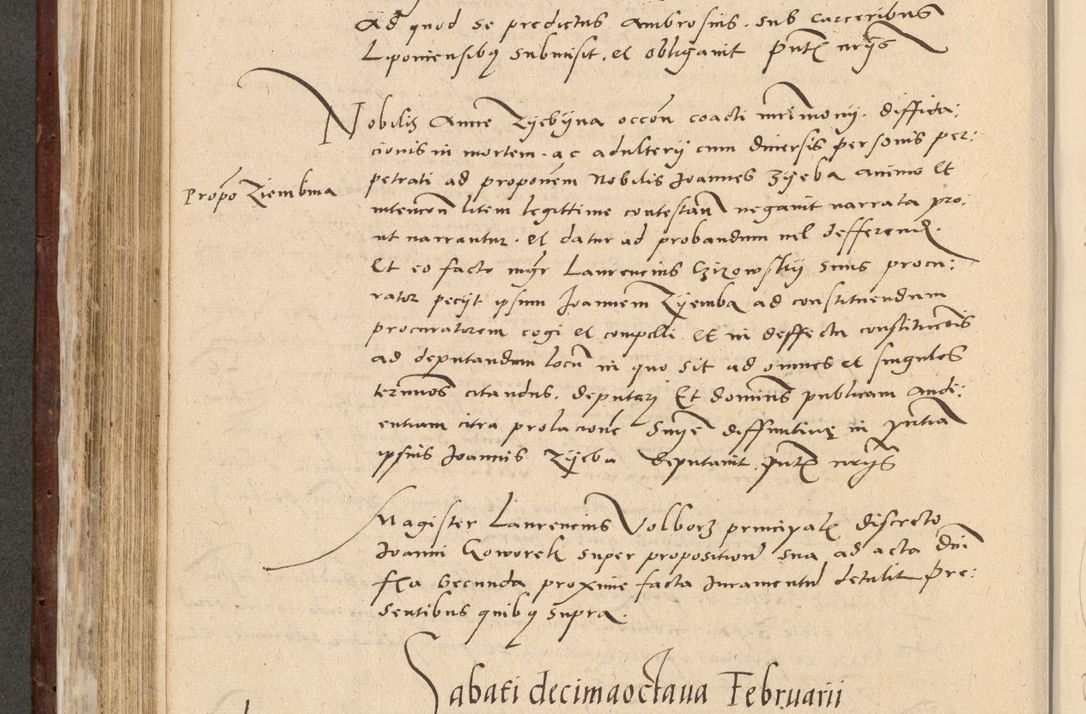 Ad quod se predictus Ambrosius. sub carceribus
Liponiensibq submisit. et obligavit pntẽ nrijs
Nobilis Anne Zyebijna occõn coacti mrimonij. diffida:
cionis in mortem. ac adulterij cum diversis personis per:
Propõ Ziembina
petrati ad proponem Nobilis Joannes Zijeba animo Et
intencõn litem legittime contestañ negavit narrata pro:
ut narrantur. et datur ad probandum vel defferend.
Et eo facto mgr Laurencius Czizowskij suus procu:
rator pecijt ipsum Joannem Zijemba ad constituendum
procuratorem cogi et compelli Et in deffectu constituẽtis
ad deputandum locũ in quo sit ad omnes et singulos
terminos citandus. deputari Et dominus publicam audi:
entiam citra prolacione snije diffinitivę in pntia
ipsius Joannis Zijeba deputavit. pntẽ nrijs
Magister Laurencius Volborz principalẽ discreto
Joanni Goworek super propositione sua ad acta dni
fẽa secunda proxime facta Juramentũ detulit Pre:
sentibus quibq supra.
Sabati decimaoctava Februarii